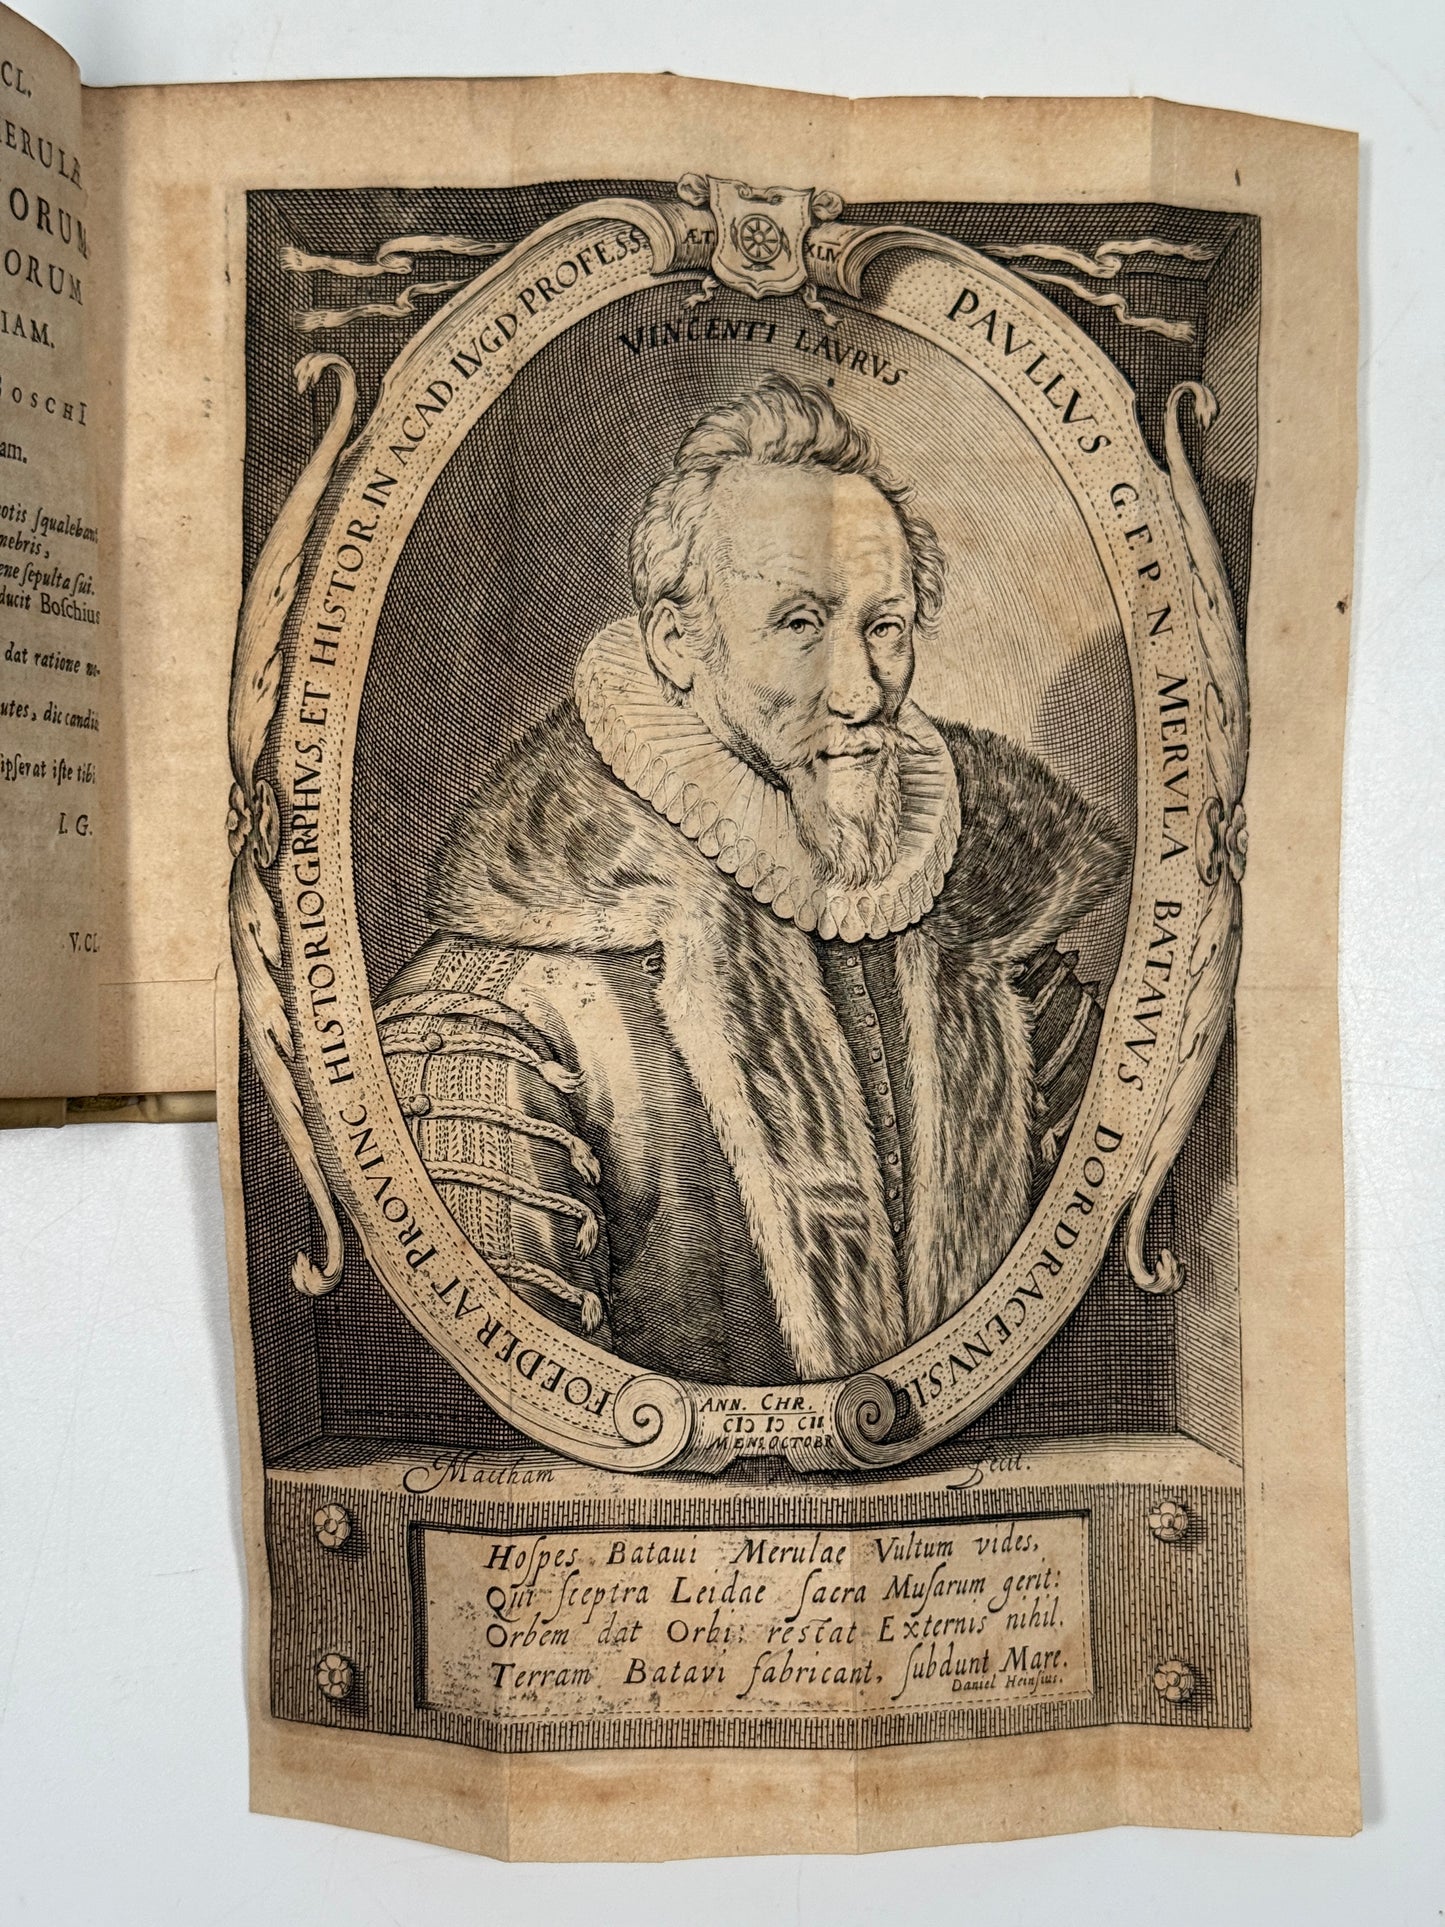 CL.
ORUM
ORUM
IAM.
BOSCHI
am.
otis ſqualebant
nebris,
ene ſepulta ſui.
ducit Boſchius
dat ratione
utes, dic
ipſerat iſte tibi
I. G.
V. CL.
ÆT. XLIV
VINCENTI LAVRVS
PAVLLVS G. F. P. N. MERVLA BATAVVS DORDRACENVS.IC
FOEDERAT PROVINC HISTORIOGRPHVS, ET HISTOR. IN ACAD. LVGD PROFESS.
ANN. CHR.
CIↃ IↃ CII
MENS. OCTOBR
Matham fecit.
Hoſpes Bataui Merulae Vultum vides,
Qui ſceptra Leidae ſacra Muſarum gerit:
Orbem dat Orbi: restat Externis nihil.
Terram Batavi fabricant, ſubdunt Mare.
Daniel Heinſius.